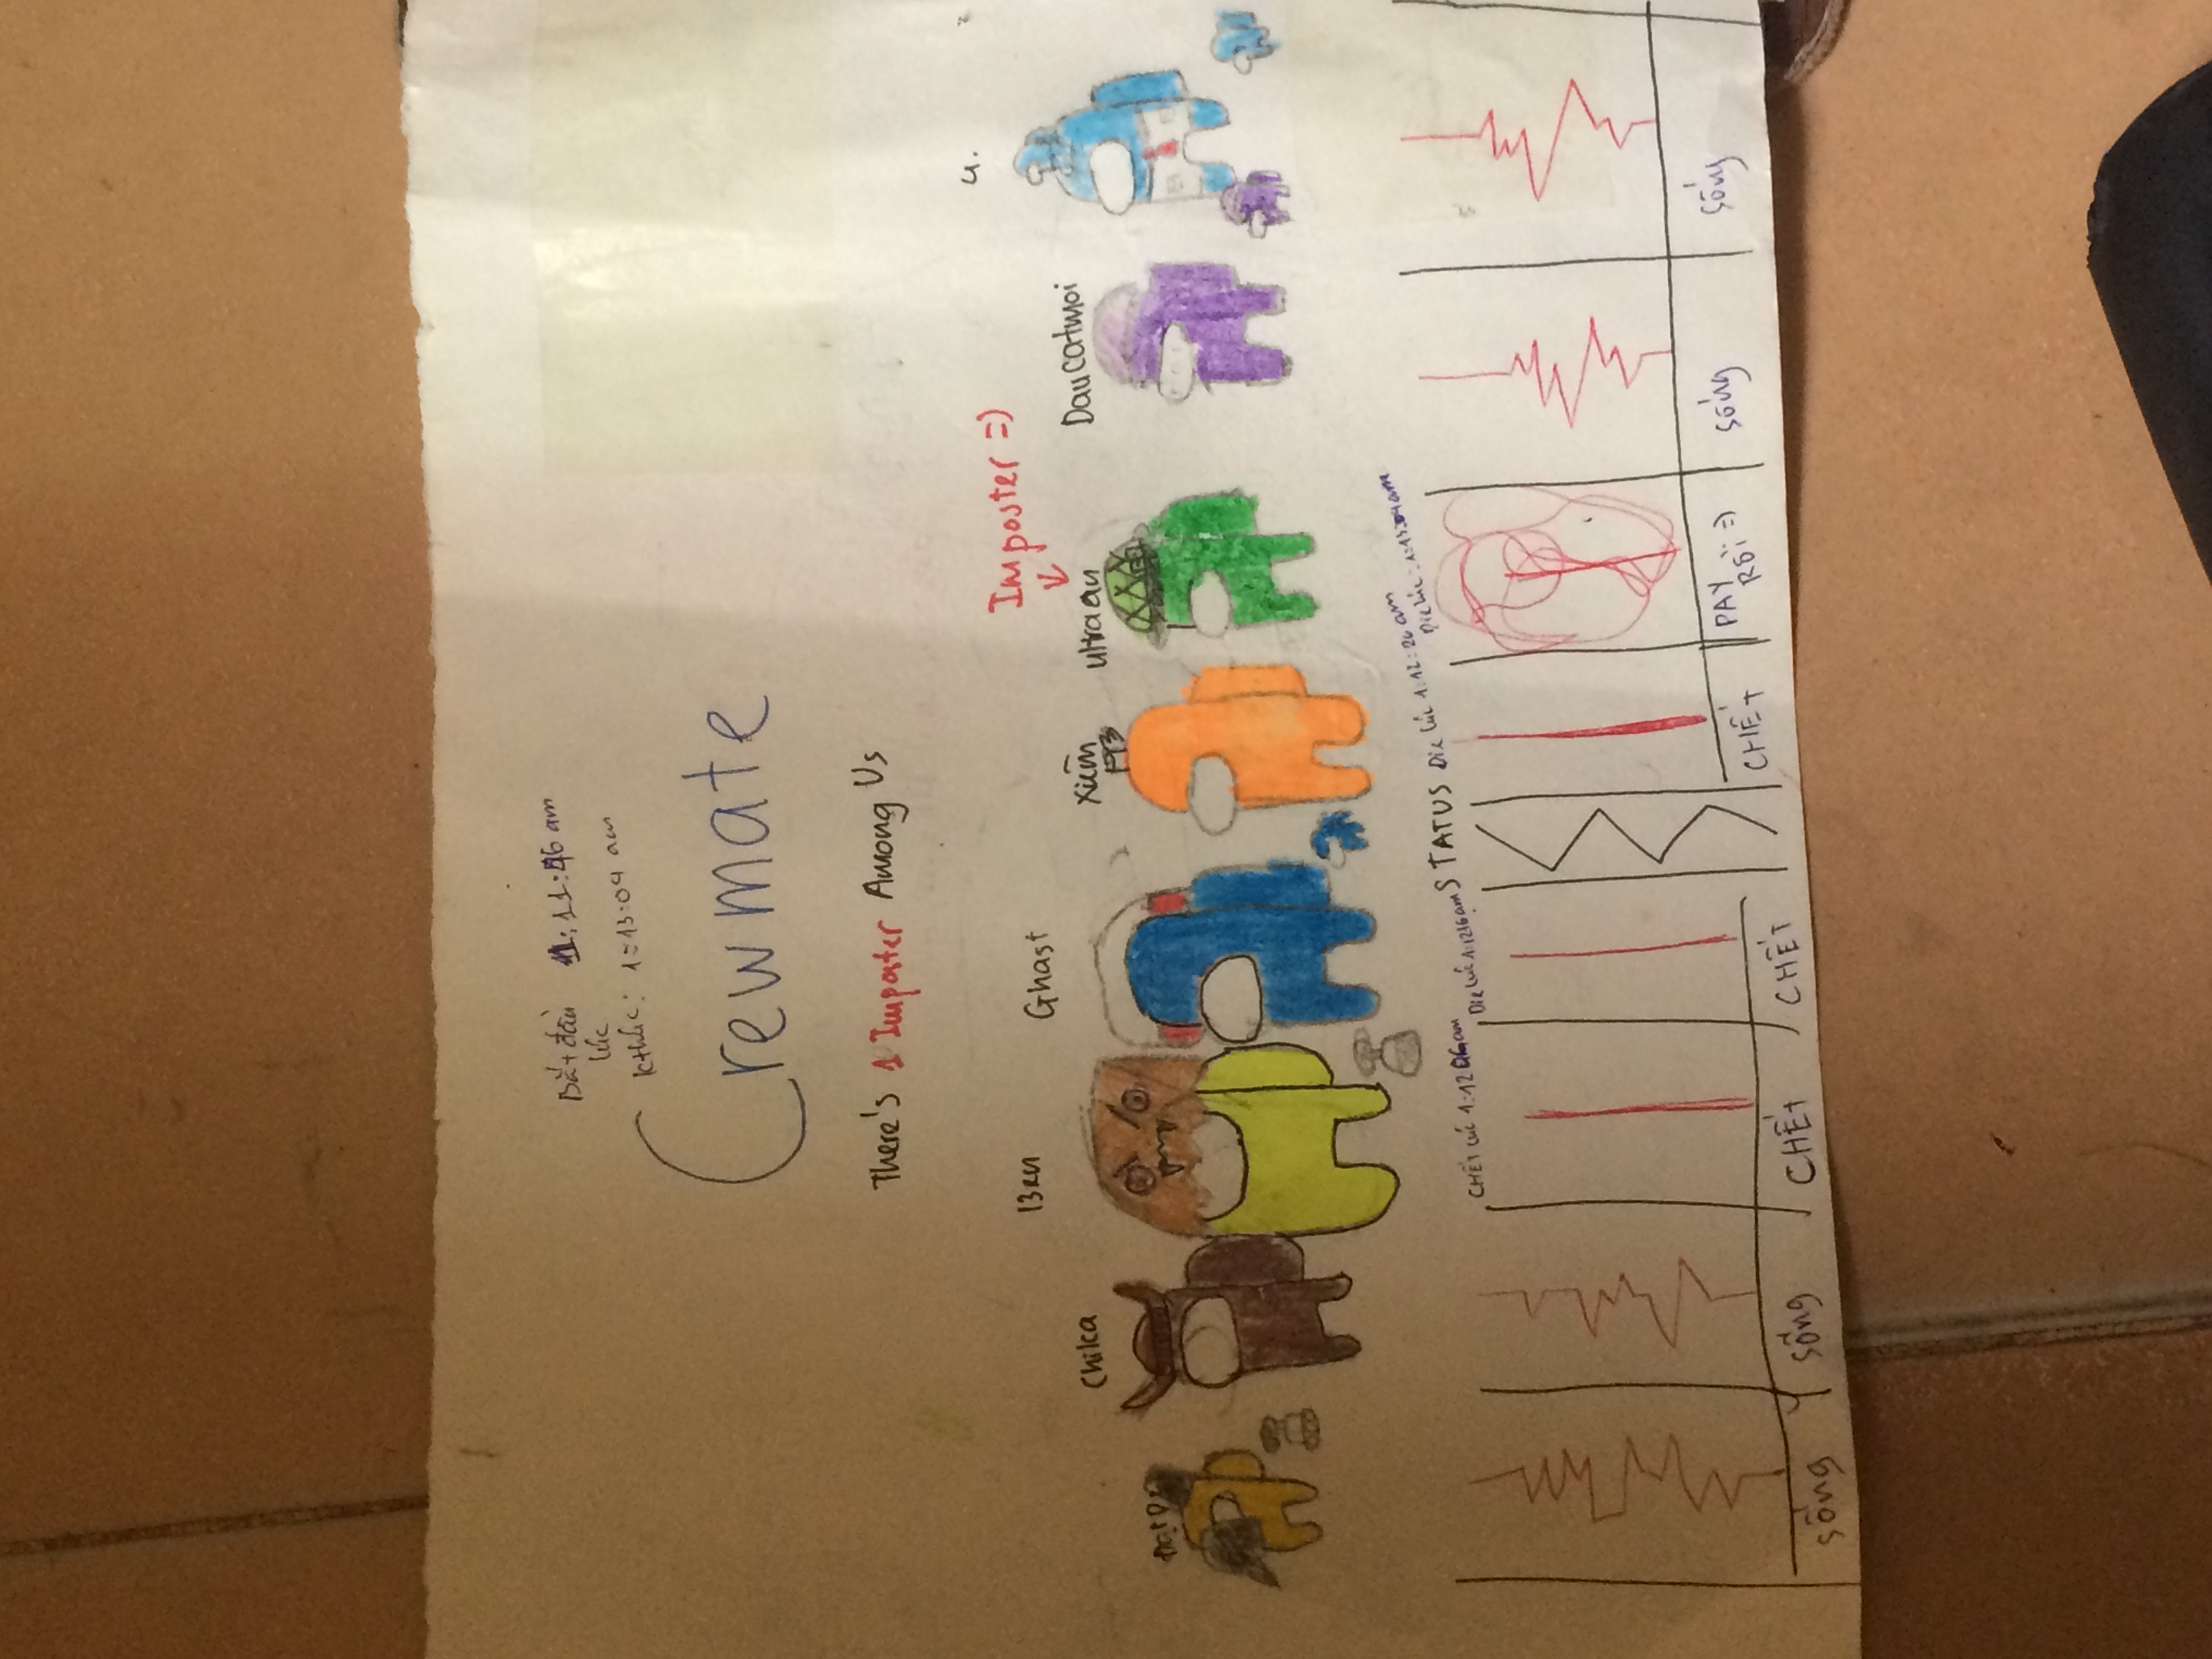 Bắt đầu 1:11:46 am
lúc
kthúc: 1:13:04 am
Crewmate
There's 1 Imposter Among Us
Imposter =)
4.
Chika
Ben
Ghast
Xiêm
ultraan
Daucatmoi
CHẾT lúc 1:12 06 am
Die lúc 1:12 16 am
STATUS
Die lúc 1:12:26 am
Die lúc: 1:13:04 am
Sống
Sống
CHẾT
CHẾT
CHẾT
PAY
RỒI =)
Sống
Sống